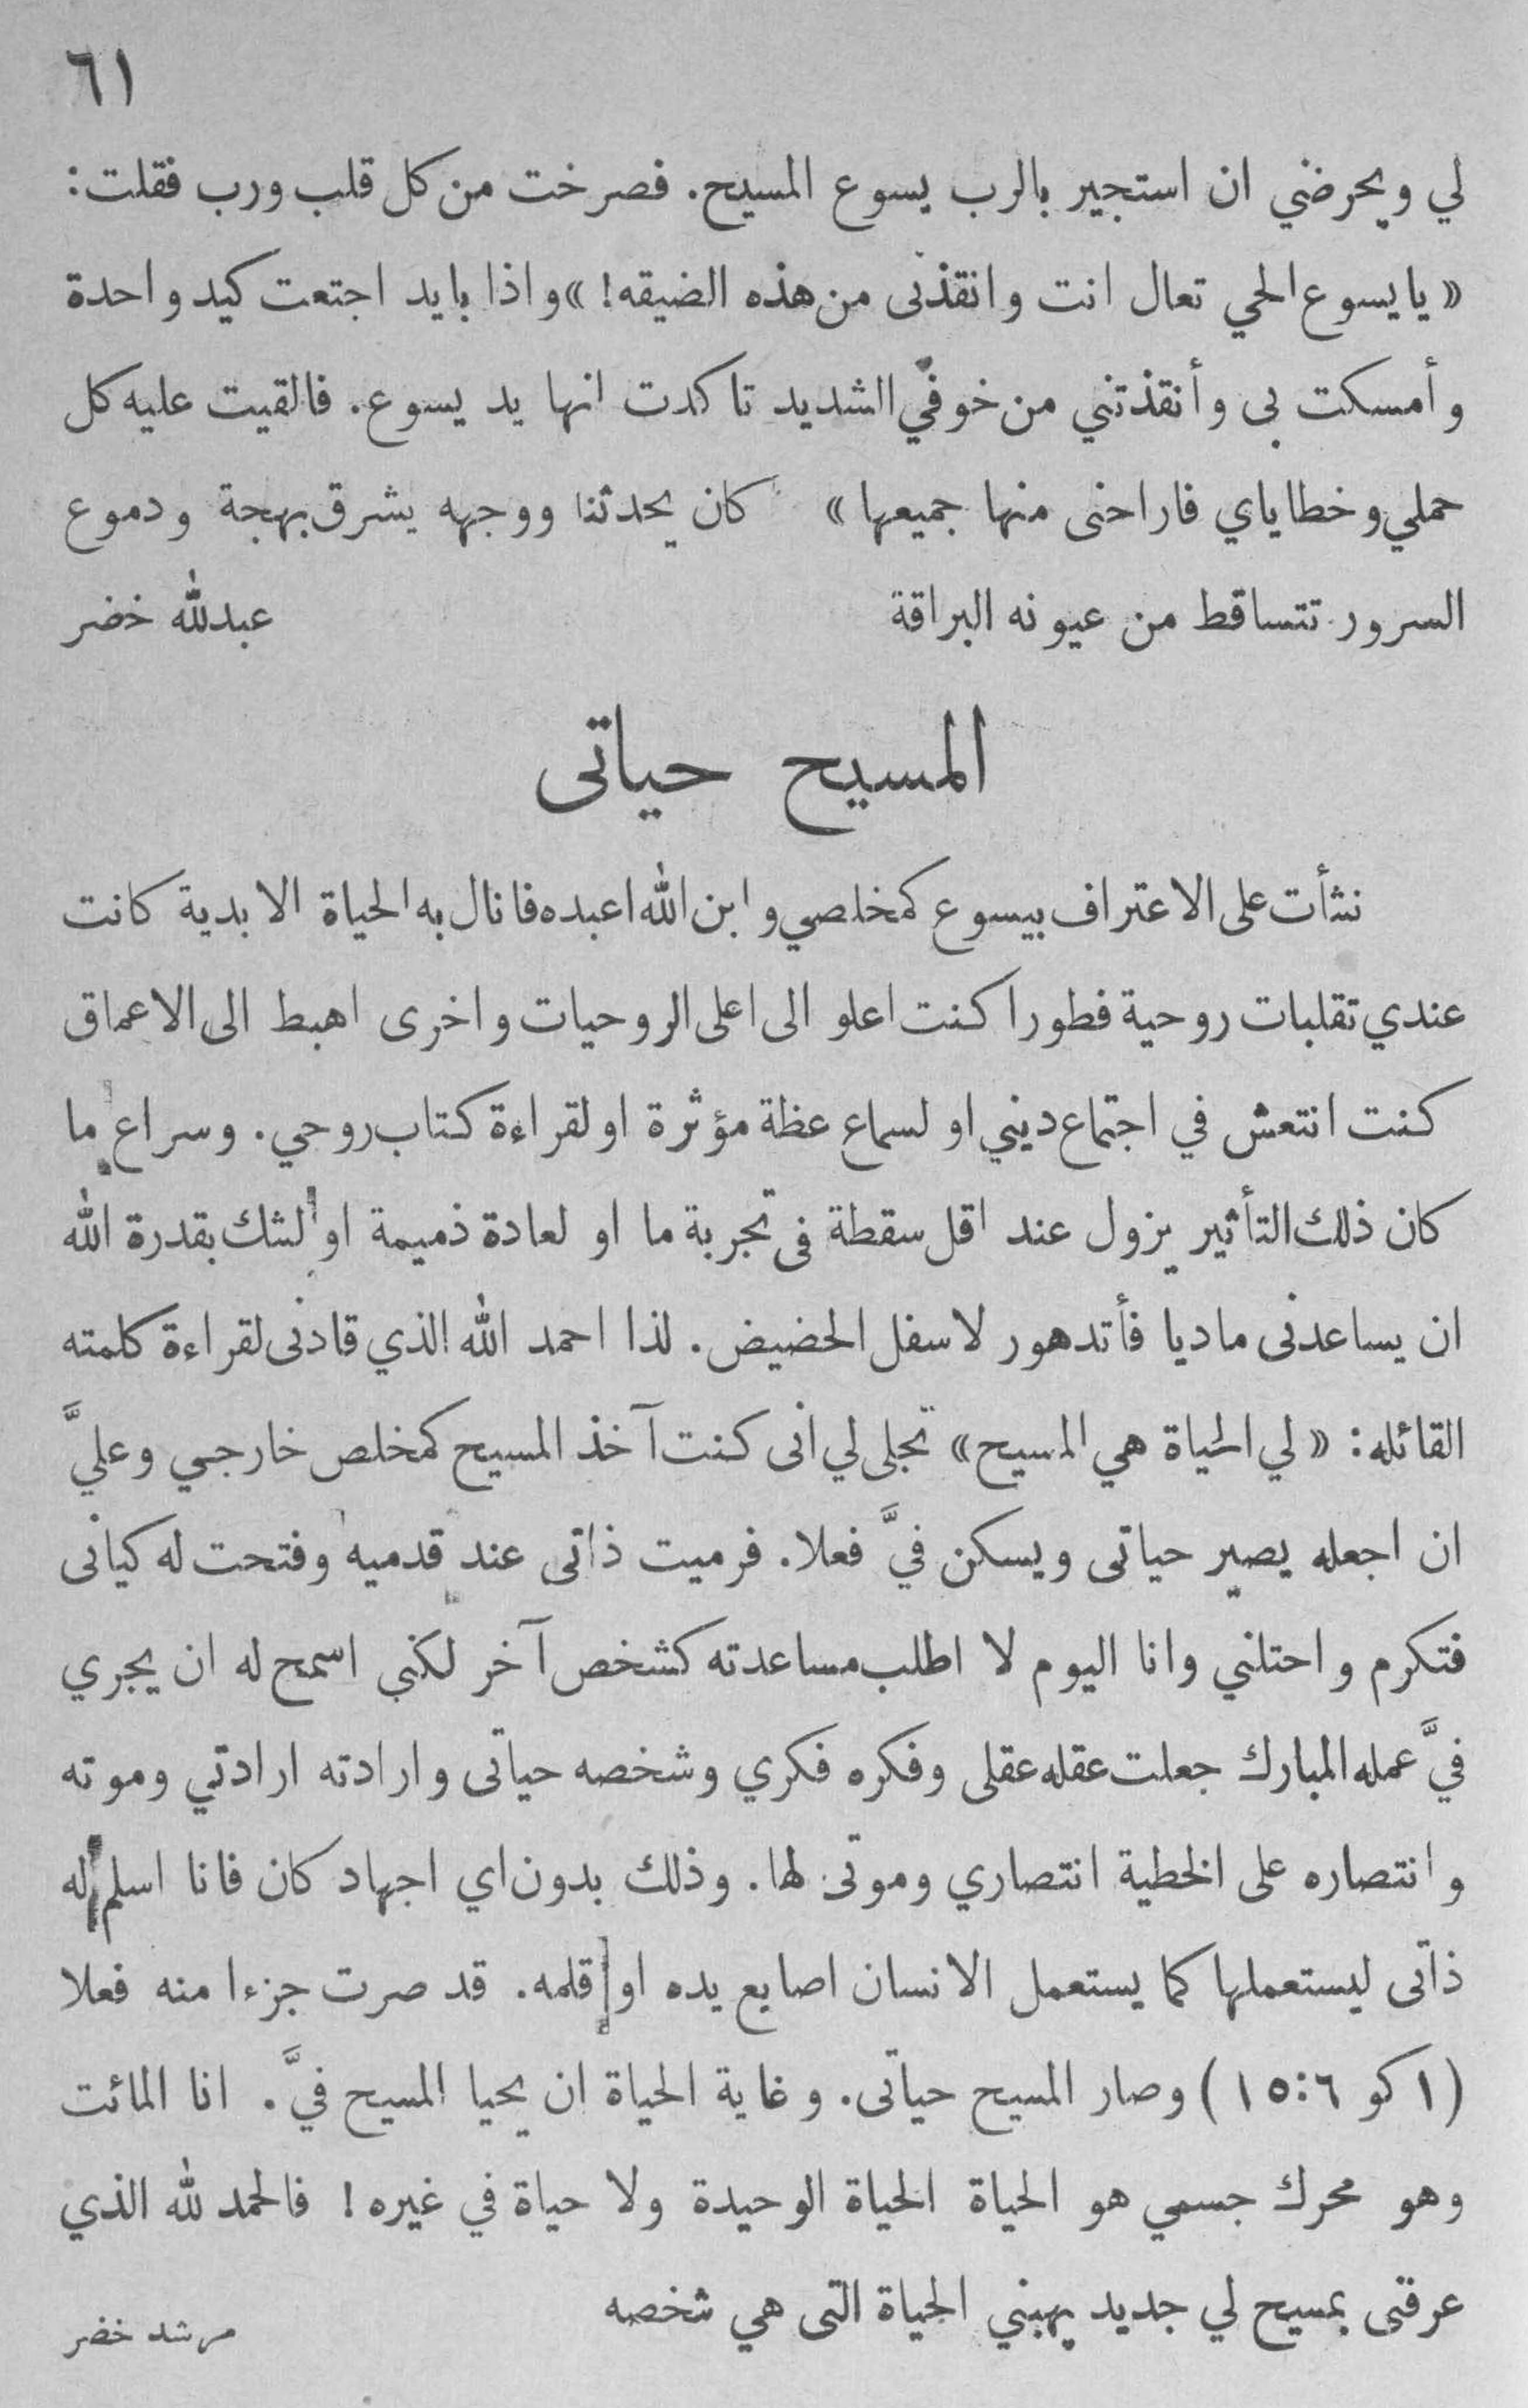 ٦١
لي ويحرضني ان استجير بالرب يسوع المسيح. فصرخت من كل قلب ورب فقلت:
«يا يسوع الحي تعال انت وانقذنى من هذه الضيقه!» واذا بايد اجتعت كيد واحدة
وأمسكت بى وأنقذتني من خوفي الشديد تاكدت انها يد يسوع. فالقيت عليه كل
حملي وخطاياي فاراحنى منها جميعها» كان يحدثنا ووجهه يشرق بهجة ودموع
السرور تتساقط من عيونه البراقة عبدلله خضر
المسيح حياتى
نشأت على الاعتراف بيسوع كمخلصي وابن الله اعبده فانال به الحياة الابدية كانت
عندي تقلبات روحية فطورا كنت اعلو الى اعلى الروحيات واخرى اهبط الى الاعماق
كنت انتعش في اجتماع ديني او لسماع عظة مؤثرة او لقراءة كتاب روحي. وسراع ما
كان ذلك التأثير يزول عند اقل سقطة فى تجربة ما او لعادة ذميمة او لشك بقدرة الله
ان يساعدنى ماديا فأتدهور لاسفل الحضيض. لذا احمد الله الذي قادنى لقراءة كلمته
القائله: «لي الحياة هي المسيح» تجلى لي انى كنت آخذ المسيح كمخلص خارجي وعليَّ
ان اجعله يصير حياتى ويسكن فيَّ فعلا. فرميت ذاتى عند قدميه وفتحت له كيانى
فتكرم واحتلني وانا اليوم لا اطلب مساعدته كشخص آخر لكني اسمح له ان يجري
فيَّ عمله المبارك جعلت عقله عقلى وفكره فكري وشخصه حياتى وارادته ارادتي وموته
وانتصاره على الخطية انتصاري وموتى لها. وذلك بدون اي اجهاد كان فانا اسلم له
ذاتى ليستعملها كما يستعمل الانسان اصابع يده او قلمه. قد صرت جزءا منه فعلا
(١ كو ٦:١٥) وصار المسيح حياتى. وغاية الحياة ان يحيا المسيح فيَّ. انا المائت
وهو محرك جسمي هو الحياة الحياة الوحيدة ولا حياة في غيره! فالحمد لله الذي
عرفنى بمسيح لي جديد يهبني الحياة التى هي شخصه مرشد خضر